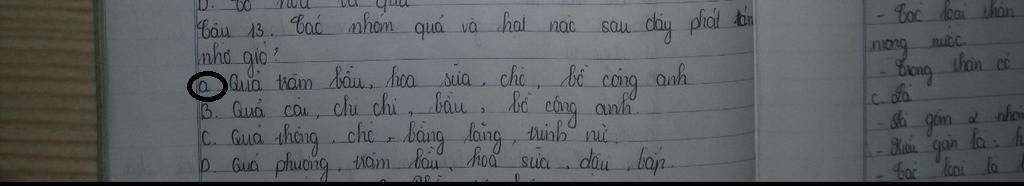 Câu 13. Các nhóm quả và hạt nào sau đây phát tán
nhờ gió?
a. Quả trâm bầu, hoa sữa, chò, bồ công anh
B. Quả cải, chi chi, bầu, bồ công anh.
C. Quả thông, chò, bằng lăng, trinh nữ.
D. Quả phượng, trâm bầu, hoa sữa, đậu bắp.
- Các loại thân
mọng nước
- Trong thân có
- Các loại lá